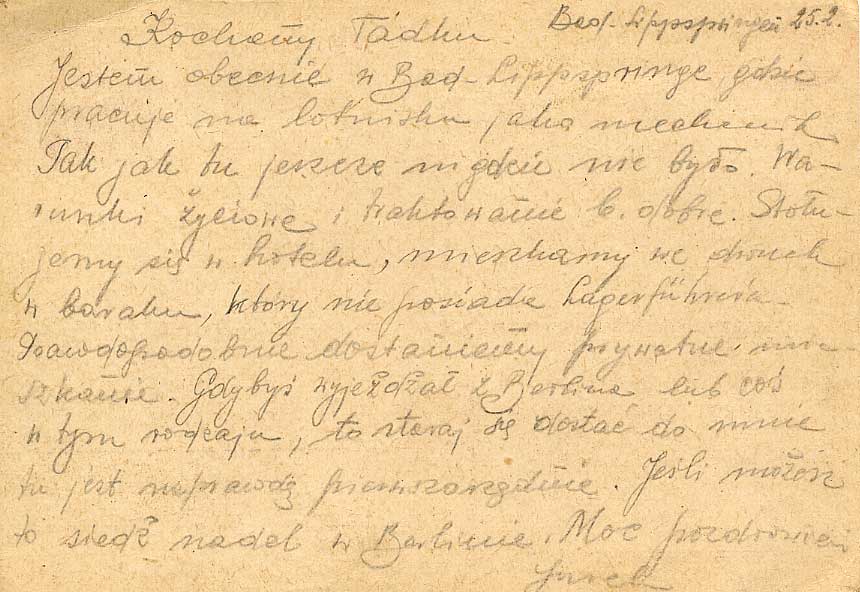 Bad-Lippspringen 25.2.
Kochany Tadku
Jestem obecnie w Bad-Lippspringe, gdzie
pracuje na lotnisku jako mechanik
Tak jak tu jeszcze nigdzie nie było. Wa-
runki życiowe i traktowanie b. dobre. Stołu-
jemy się w hotelu, mieszkamy we dwuch
w baraku, który nie posiada Lagerführera.
Prawdopodobnie dostaniemy prywatne mie-
szkanie. Gdybyś wyjeżdżał z Berlina lub coś
w tym rodzaju, to staraj się dostać do mnie
tu jest naprawdę pierwszorzędnie. Jeśli możesz
to siedź nadal w Berlinie. Moc pozdrowień
Jurek